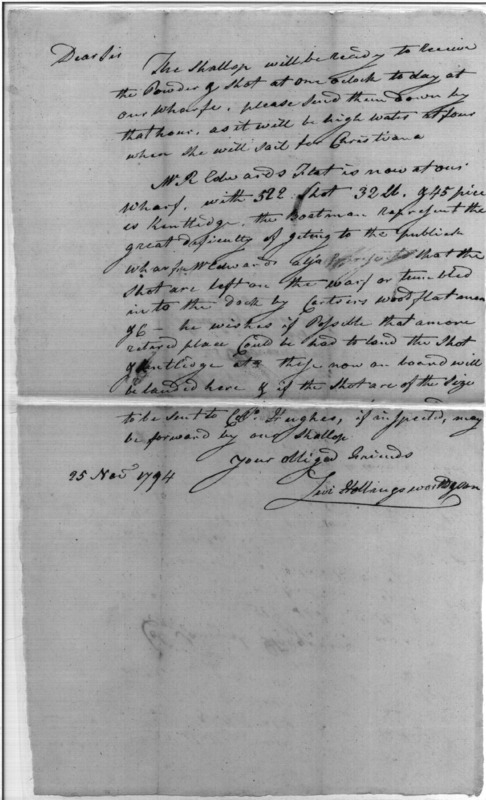 Dear Sir
The Shallop will be ready to receive
the Powder & Shot at one o'clock to day at
our wharfe, please send them down by
that hour, as it will be high water at four
when she will sail for Christiana
Mr. R Edwards Flat is now at our
wharf, with 522 Shot 32 lb. & 45 piece
es Kentlidge, the Boatman represent the
great difficulty of geting to the publick
wharf Mr Edwards also that the
Shot are left on the warf or tumbled
in to the dock by Carters wood flat men
&c — he wishes if Possible that a more
retired place could be had to land the Shot
& Kentlidge at these now on board will
be landed here & if the Shot are of the Size
to be sent to Col. Hughes, if inspected, may
be forward by our Shallop
Your obliged Friends
25 Nov. 1794
Levi Hollingsworth & Son